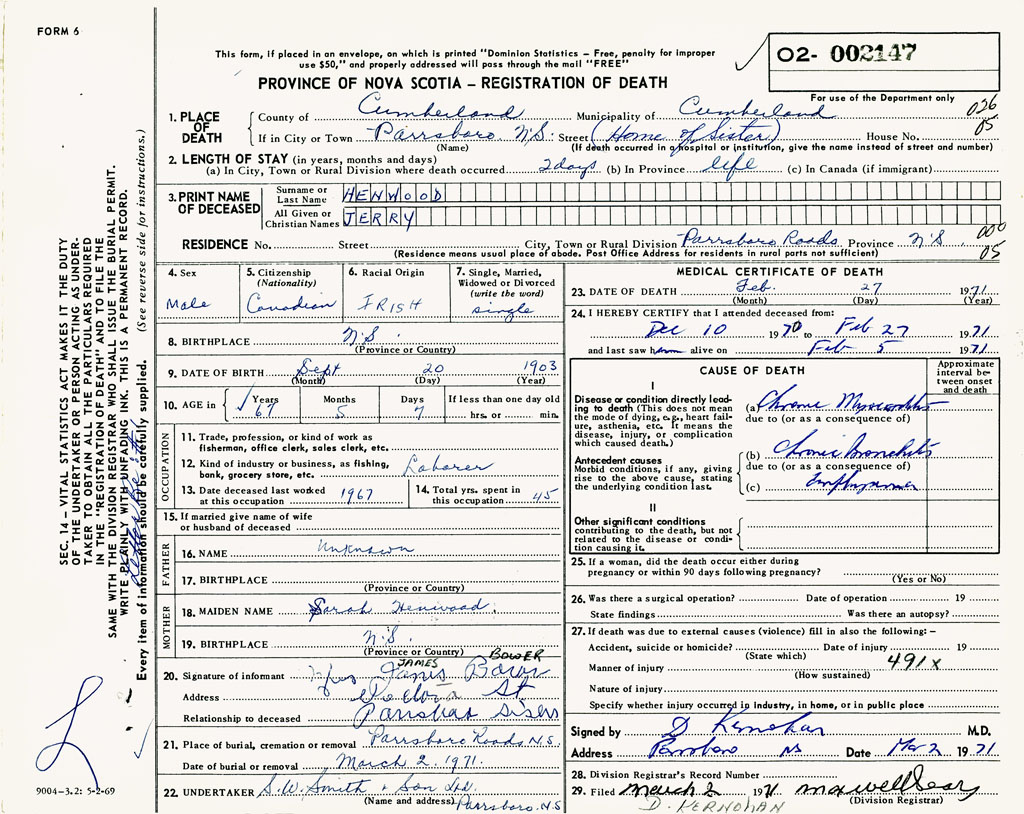 FORM 6
This form, if placed in an envelope, on which is printed "Dominion Statistics – Free, penalty for improper
use $50," and properly addressed will pass through the mail "FREE"
PROVINCE OF NOVA SCOTIA – REGISTRATION OF DEATH
O2- 002147
For use of the Department only
026
05
1. PLACE OF DEATH
County of Cumberland Municipality of Cumberland
If in City or Town Parrsboro N.S. Street (Home of Sister) House No.
(Name) (If death occurred in a hospital or institution, give the name instead of street and number)
2. LENGTH OF STAY (in years, months and days)
(a) In City, Town or Rural Division where death occurred 2 days (b) In Province life (c) In Canada (if immigrant)
3. PRINT NAME OF DECEASED
Surname or Last Name HENWOOD
All Given or Christian Names JERRY
RESIDENCE No. Street City, Town or Rural Division Parrsboro Roads Province N.S.
000
05
(Residence means usual place of abode. Post Office Address for residents in rural parts not sufficient)
4. Sex
Male
5. Citizenship
(Nationality)
Canadian
6. Racial Origin
IRISH
7. Single, Married,
Widowed or Divorced
(write the word)
single
8. BIRTHPLACE N.S.
(Province or Country)
9. DATE OF BIRTH Sept 20 1903
(Month) (Day) (Year)
10. AGE in
Years 67
Months 5
Days 7
If less than one day old
hrs. or min.
OCCUPATION
11. Trade, profession, or kind of work as
fisherman, office clerk, sales clerk, etc.
12. Kind of industry or business, as fishing,
bank, grocery store, etc. Laborer
13. Date deceased last worked
at this occupation 1967
14. Total yrs. spent in
this occupation 45
15. If married give name of wife
or husband of deceased
FATHER
16. NAME Unknown
17. BIRTHPLACE
(Province or Country)
MOTHER
18. MAIDEN NAME Sarah Henwood
19. BIRTHPLACE N.S.
(Province or Country)
JAMES BOWER
20. Signature of informant Mrs James Bower
Address St
Parrsboro
Relationship to deceased Sister
21. Place of burial, cremation or removal Parrsboro Roads N.S.
Date of burial or removal March 2, 1971.
22. UNDERTAKER S.W. Smith & Son Ltd.
(Name and address) Parrsboro. N.S
MEDICAL CERTIFICATE OF DEATH
23. DATE OF DEATH Feb. 27 1971
(Month) (Day) (Year)
24. I HEREBY CERTIFY that I attended deceased from:
Dec 10 1970 to Feb 27 1971
and last saw him alive on Feb 5 1971
CAUSE OF DEATH
Approximate
interval be-
tween onset
and death
I
Disease or condition directly lead-
ing to death (This does not mean
the mode of dying, e.g., heart fail-
ure, asthenia, etc. It means the
disease, injury, or complication
which caused death.)
(a) Chronic Myocarditis
due to (or as a consequence of)
Antecedent causes
Morbid conditions, if any, giving
rise to the above cause, stating
the underlying condition last.
(b) Chronic Bronchitis
due to (or as a consequence of)
(c) Emphysema
II
Other significant conditions
contributing to the death, but not
related to the disease or condi-
tion causing it.
25. If a woman, did the death occur either during
pregnancy or within 90 days following pregnancy?
(Yes or No)
26. Was there a surgical operation? Date of operation 19
State findings Was there an autopsy?
27. If death was due to external causes (violence) fill in also the following: –
Accident, suicide or homicide? Date of injury 19
(State which)
491x
Manner of injury
(How sustained)
Nature of injury
Specify whether injury occurred in industry, in home, or in public place
Signed by D Kernohan M.D.
Address Parrsboro NS Date Mar 2 1971
28. Division Registrar's Record Number
29. Filed March 2 1971
(Division Registrar)
D. KERNOHAN
SEC. 14 – VITAL STATISTICS ACT MAKES IT THE DUTY
OF THE UNDERTAKER OR PERSON ACTING AS UNDER-
TAKER TO OBTAIN ALL THE PARTICULARS REQUIRED
IN THE "REGISTRATION OF DEATH" AND TO FILE THE
SAME WITH THE DIVISION REGISTRAR WHO SHALL ISSUE THE BURIAL PERMIT.
WRITE PLAINLY WITH UNFADING INK. THIS IS A PERMANENT RECORD.
Every item of information should be carefully supplied. (See reverse side for instructions.)
9004-3.2: 5-2-69